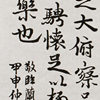 之大俯察品
騁懷足以極
樂也
敬臨蘭
甲申仲